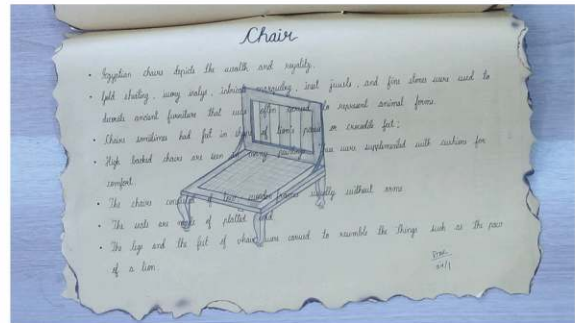 Chair
• Egyptian chairs depicts the wealth and royality.
• Gold sheeting, ivory inlays, intricate marquetry, inset jewels, and fine stones were used to
decorate ancient furniture that was often carved to represent animal forms.
• Chairs sometimes had feet in shape of lion's paws or crocodile feet;
• High backed chairs are seen in many paintings were supplemented with cushions for
comfort.
• The chairs consisted of two wooden frames usually without arms
• The seats are made of platted
• The legs and the feet of chair were carved to resemble the things such as the paw
of a lion